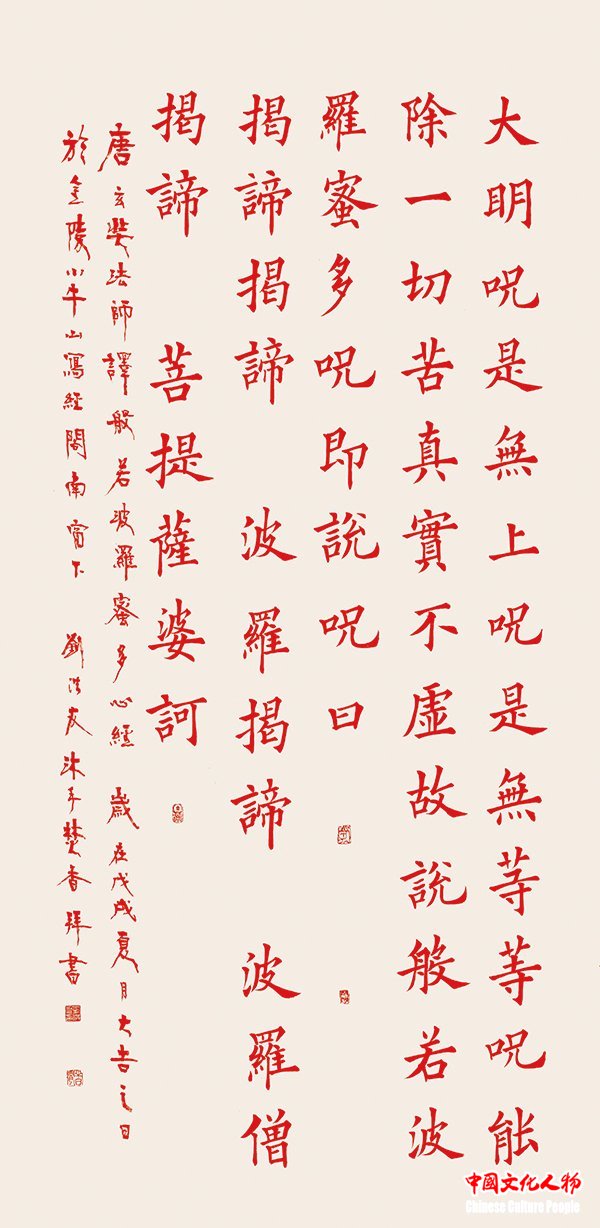 大明呪是無上呪是無等等呪能
除一切苦真實不虛故說般若波
羅蜜多呪即說呪曰
揭諦揭諦 波羅揭諦 波羅僧
揭諦 菩提薩婆訶
唐玄奘法師譯般若波羅蜜多心經 歲在戊戌夏月大吉之日
於金陵小牛山寫經閣南窗下 劉浩友沐手焚香拜書
中國文化人物
Chinese Culture People